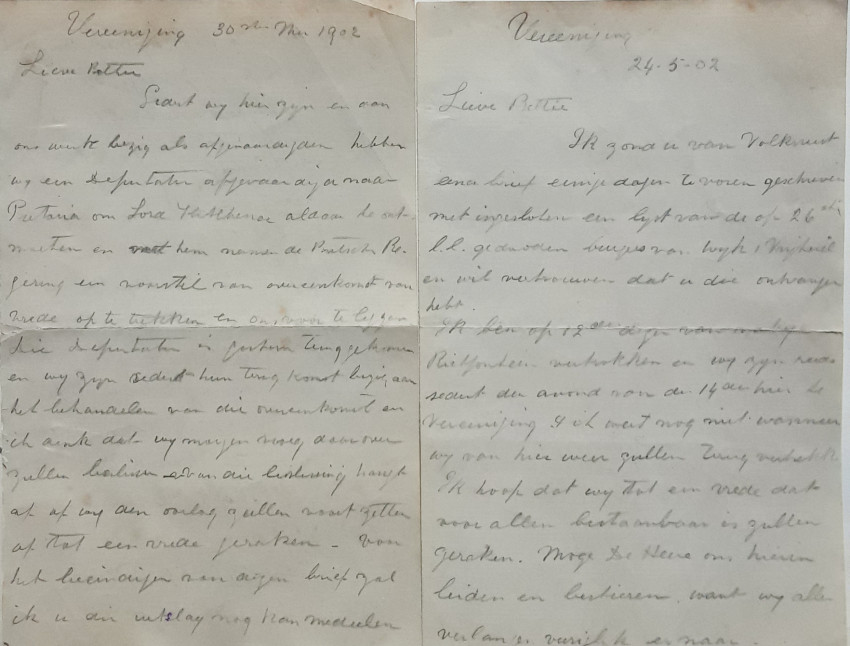 Vereeniging 30ste Mei 1902
Lieve Bettie
Sedert wy hier zyn en aan
ons werk bezig als afgevaardigden hebben
wy een Deputatie afgevaardigd naar
Pretoria om Lord Kitchener aldaar te ont-
moeten en met hem namens de Britsche Re-
gering een voorstel van overeenkomst van
vrede op te trekken en ons voor te leggen
Die Deputatie is gisteren teruggekomen
en wy zyn sedert hun terug komst bezig aan
het behandelen van die overeenkomst en
ik denk dat wy morgen vroeg daarover
zullen besluiten en van die beslissing hangt
af of wy den oorlog zullen voort zetten
of tot een vrede geraken - voor
het beeindigen van dezen brief zal
ik u den uitslag nog kan mededeelen
Vereeniging
24-5-02
Lieve Bettie
Ik zond u van Volksrust
een brief eenige dagen te voren geschreven
met ingesloten een lyst van de op 26ste
l.l. gedooden burgers van wyk 1 Vryheid
en wil vertrouwen dat u die ontvangen
hebt.
Ik ben op 12den dezer van
Rietfontein vertrokken en wy zyn reeds
sedert den avond van den 14den hier te
Vereeniging & ik weet nog niet wanneer
wy van hier weer zullen terug vertrekken
Ik hoop dat wy tot een vrede dat
voor allen bestaanbaar is zullen
geraken. Moge De Heere ons hierin
leiden en bestieren, want wy allen
verlangen vurig er naar.